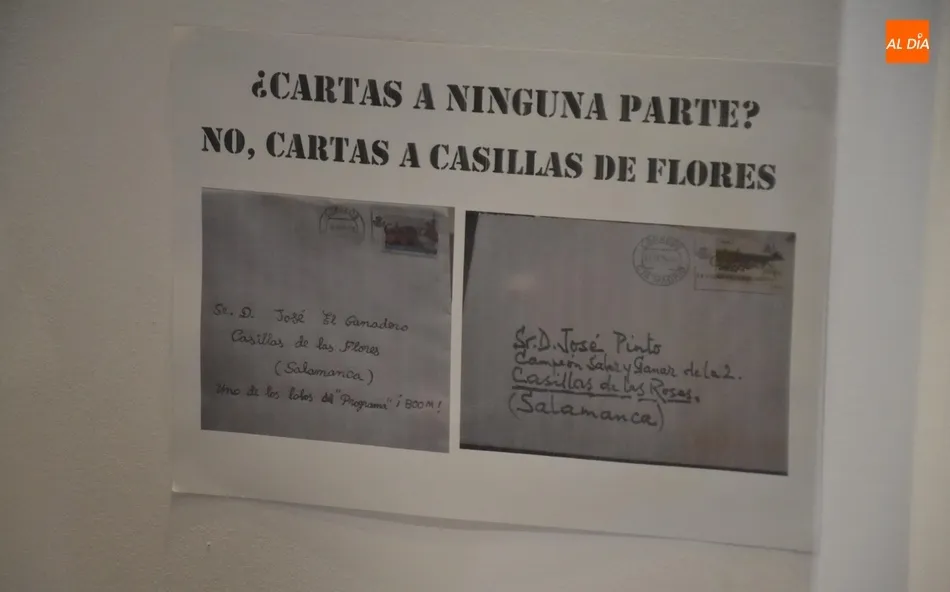 AL DÍA
¿CARTAS A NINGUNA PARTE?
NO, CARTAS A CASILLAS DE FLORES
Sr. D. José "El Ganadero
Casillas de las Flores
(Salamanca)
Uno de los lobos del "Programa" ¡BOOM!
Sr. D. José Pinto
Campeón Saber y Ganar de la 2.
Casillas de las Rosas.
(Salamanca)